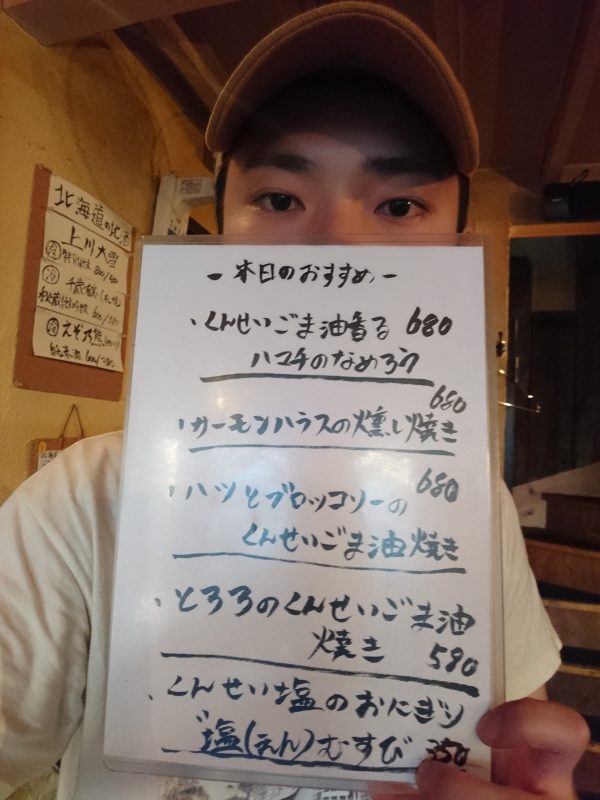 北海道の地酒
上川大雪
ー本日のおすすめー
、くんせいごま油香る 680
ハコチのなめろう
680
、サーモンハラスの燻し焼き
680
、ハツとブロッコリーの
くんせいごま油焼き
、とろろのくんせいごま油
焼き 590
、くんせい塩のおにぎり
塩(えん)むすび 350